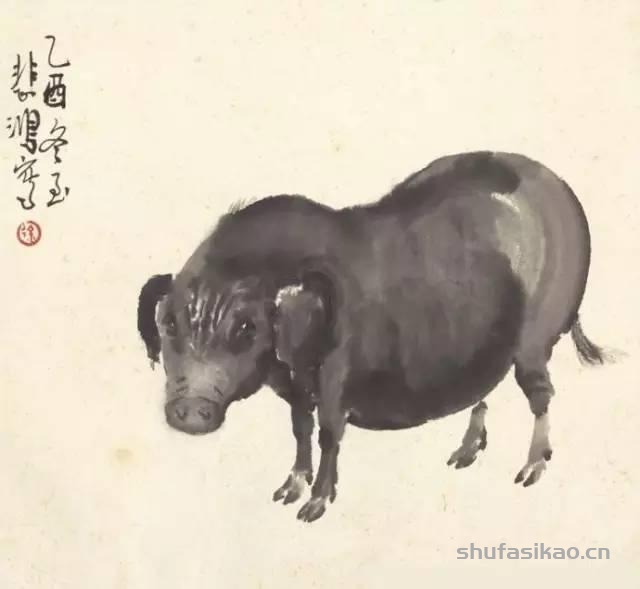 乙酉冬至
悲鸿写
徐
shufasikao.cn